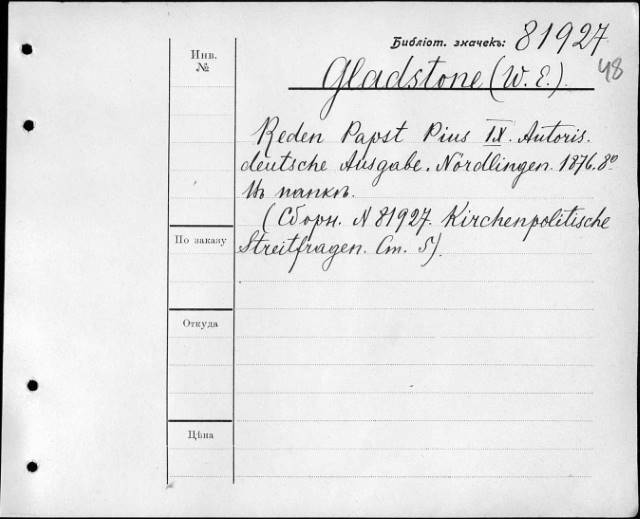 Библіот. значекъ: 81927
48
Инв.
№
Gladstone (W. E.).
Reden Papst Pius IX. Autoris.
deutsche Ausgabe. Nördlingen. 1876. 8º
Въ папкѣ.
(Сборн. N 81927. Kirchenpolitische
Streitfragen. Ст. 5).
По заказу
Откуда
Цѣна